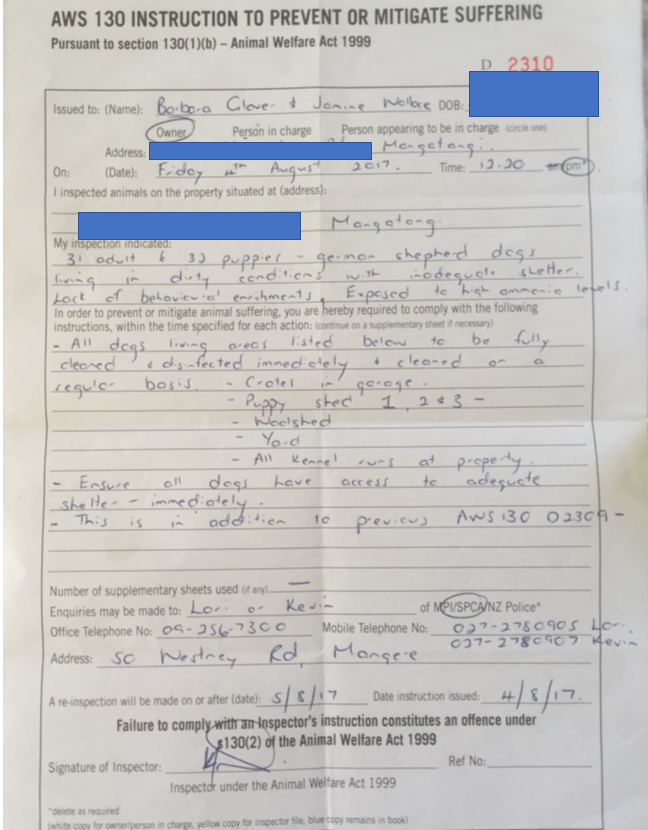 AWS 130 INSTRUCTION TO PREVENT OR MITIGATE SUFFERING
Pursuant to section 130(1)(b) – Animal Welfare Act 1999
D 2310
Issued to: (Name): Barbara Glover & Janine Wallace DOB:
Owner Person in charge Person appearing to be in charge (circle one)
Address: Mangatangi.
On: (Date): Friday 4th August 2017. Time: 12.20 am/pm*
I inspected animals on the property situated at (address):
Mangatangi.
My inspection indicated:
31 adult & 32 puppies - german shepherd dogs
living in dirty conditions with inadequate shelter.
Lack of behavioral enrichments, Exposed to high ammonia levels.
In order to prevent or mitigate animal suffering, you are hereby required to comply with the following
instructions, within the time specified for each action: (continue on a supplementary sheet if necessary)
- All dogs living areas listed below to be fully
cleaned & disinfected immediately & cleaned on a
regular basis. - Crates in garage.
- Puppy shed 1, 2 & 3 -
- Woolshed
- Yard
- All Kennel runs at property.
- Ensure all dogs have access to adequate
shelter - immediately.
- This is in addition to previous AWS 130 02309 -
Number of supplementary sheets used (if any) —
Enquiries may be made to: Lori or Kevin of MPI/SPCA/NZ Police*
Office Telephone No: 09-256-7300 Mobile Telephone No: 027-2780905 Lori
027-2780907 Kevin
Address: 50 Westney Rd, Mangere
A re-inspection will be made on or after (date): 5/8/17 Date instruction issued: 4/8/17.
Failure to comply with an Inspector's instruction constitutes an offence under
s130(2) of the Animal Welfare Act 1999
Signature of Inspector: Ref No:
Inspector under the Animal Welfare Act 1999
*delete as required
(white copy for owner/person in charge, yellow copy for inspector file, blue copy remains in book)